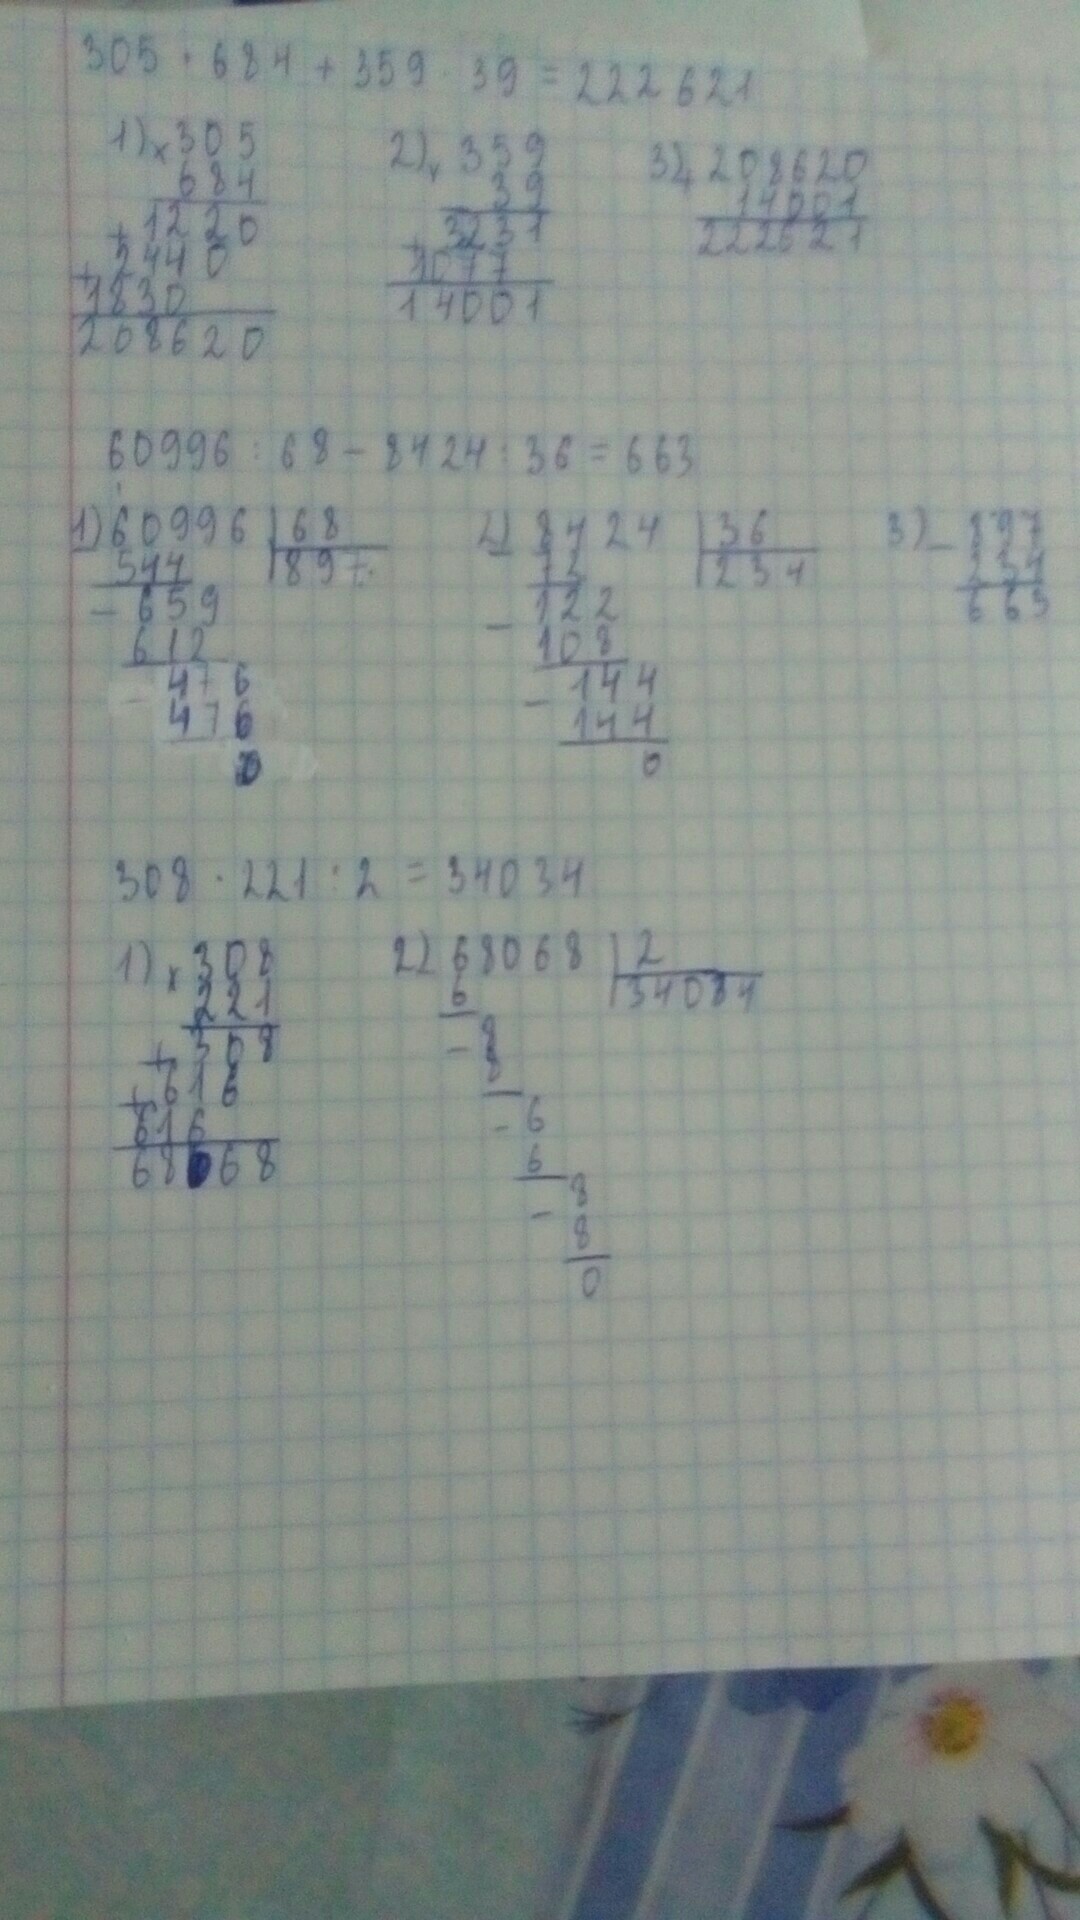 305 · 684 + 359 · 39 = 222621
1) × 305
684
+ 1220
+ 2440
1830
208620
2) × 359
39
+ 3231
1077
14001
3) + 208620
14001
222621
60996 : 68 - 8424 : 36 = 663
1) 60996 | 68
544 | 897
- 659
612
- 476
476
0
2) 8424 | 36
- 72 | 234
122
- 108
- 144
144
0
3) - 897
234
663
308 · 221 : 2 = 34034
1) × 308
221
+ 308
+ 616
616
68068
2) 68068 | 2
6 | 34034
- 8
8
- 6
6
- 8
8
0